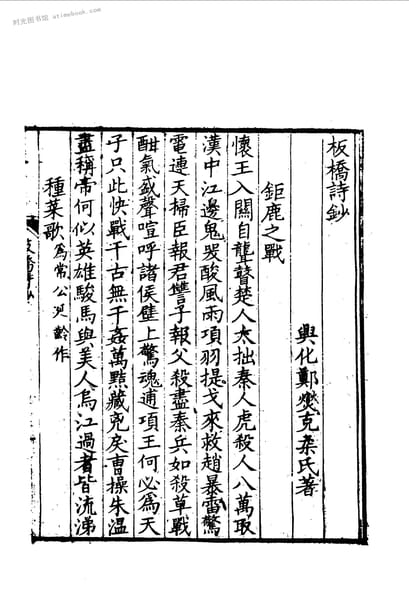 时光图书馆 atimebook.com
板橋詩鈔
興化鄭燮克柔氏著
鉅鹿之戰
懷王入關自聾瞽楚人太拙秦人虎殺人八萬取
漢中江邊鬼哭酸風雨項羽提戈來救趙暴雷驚
電連天掃臣報君讐子報父殺盡秦兵如殺草戰
酣氣盛聲喧呼諸侯壁上驚魂逋項王何必為天
子只此快戰千古無千姦萬黠藏兇戾曹操朱温
盡稱帝何似英雄駿馬與美人烏江過者皆流涕
種菜歌 為常公延齡作